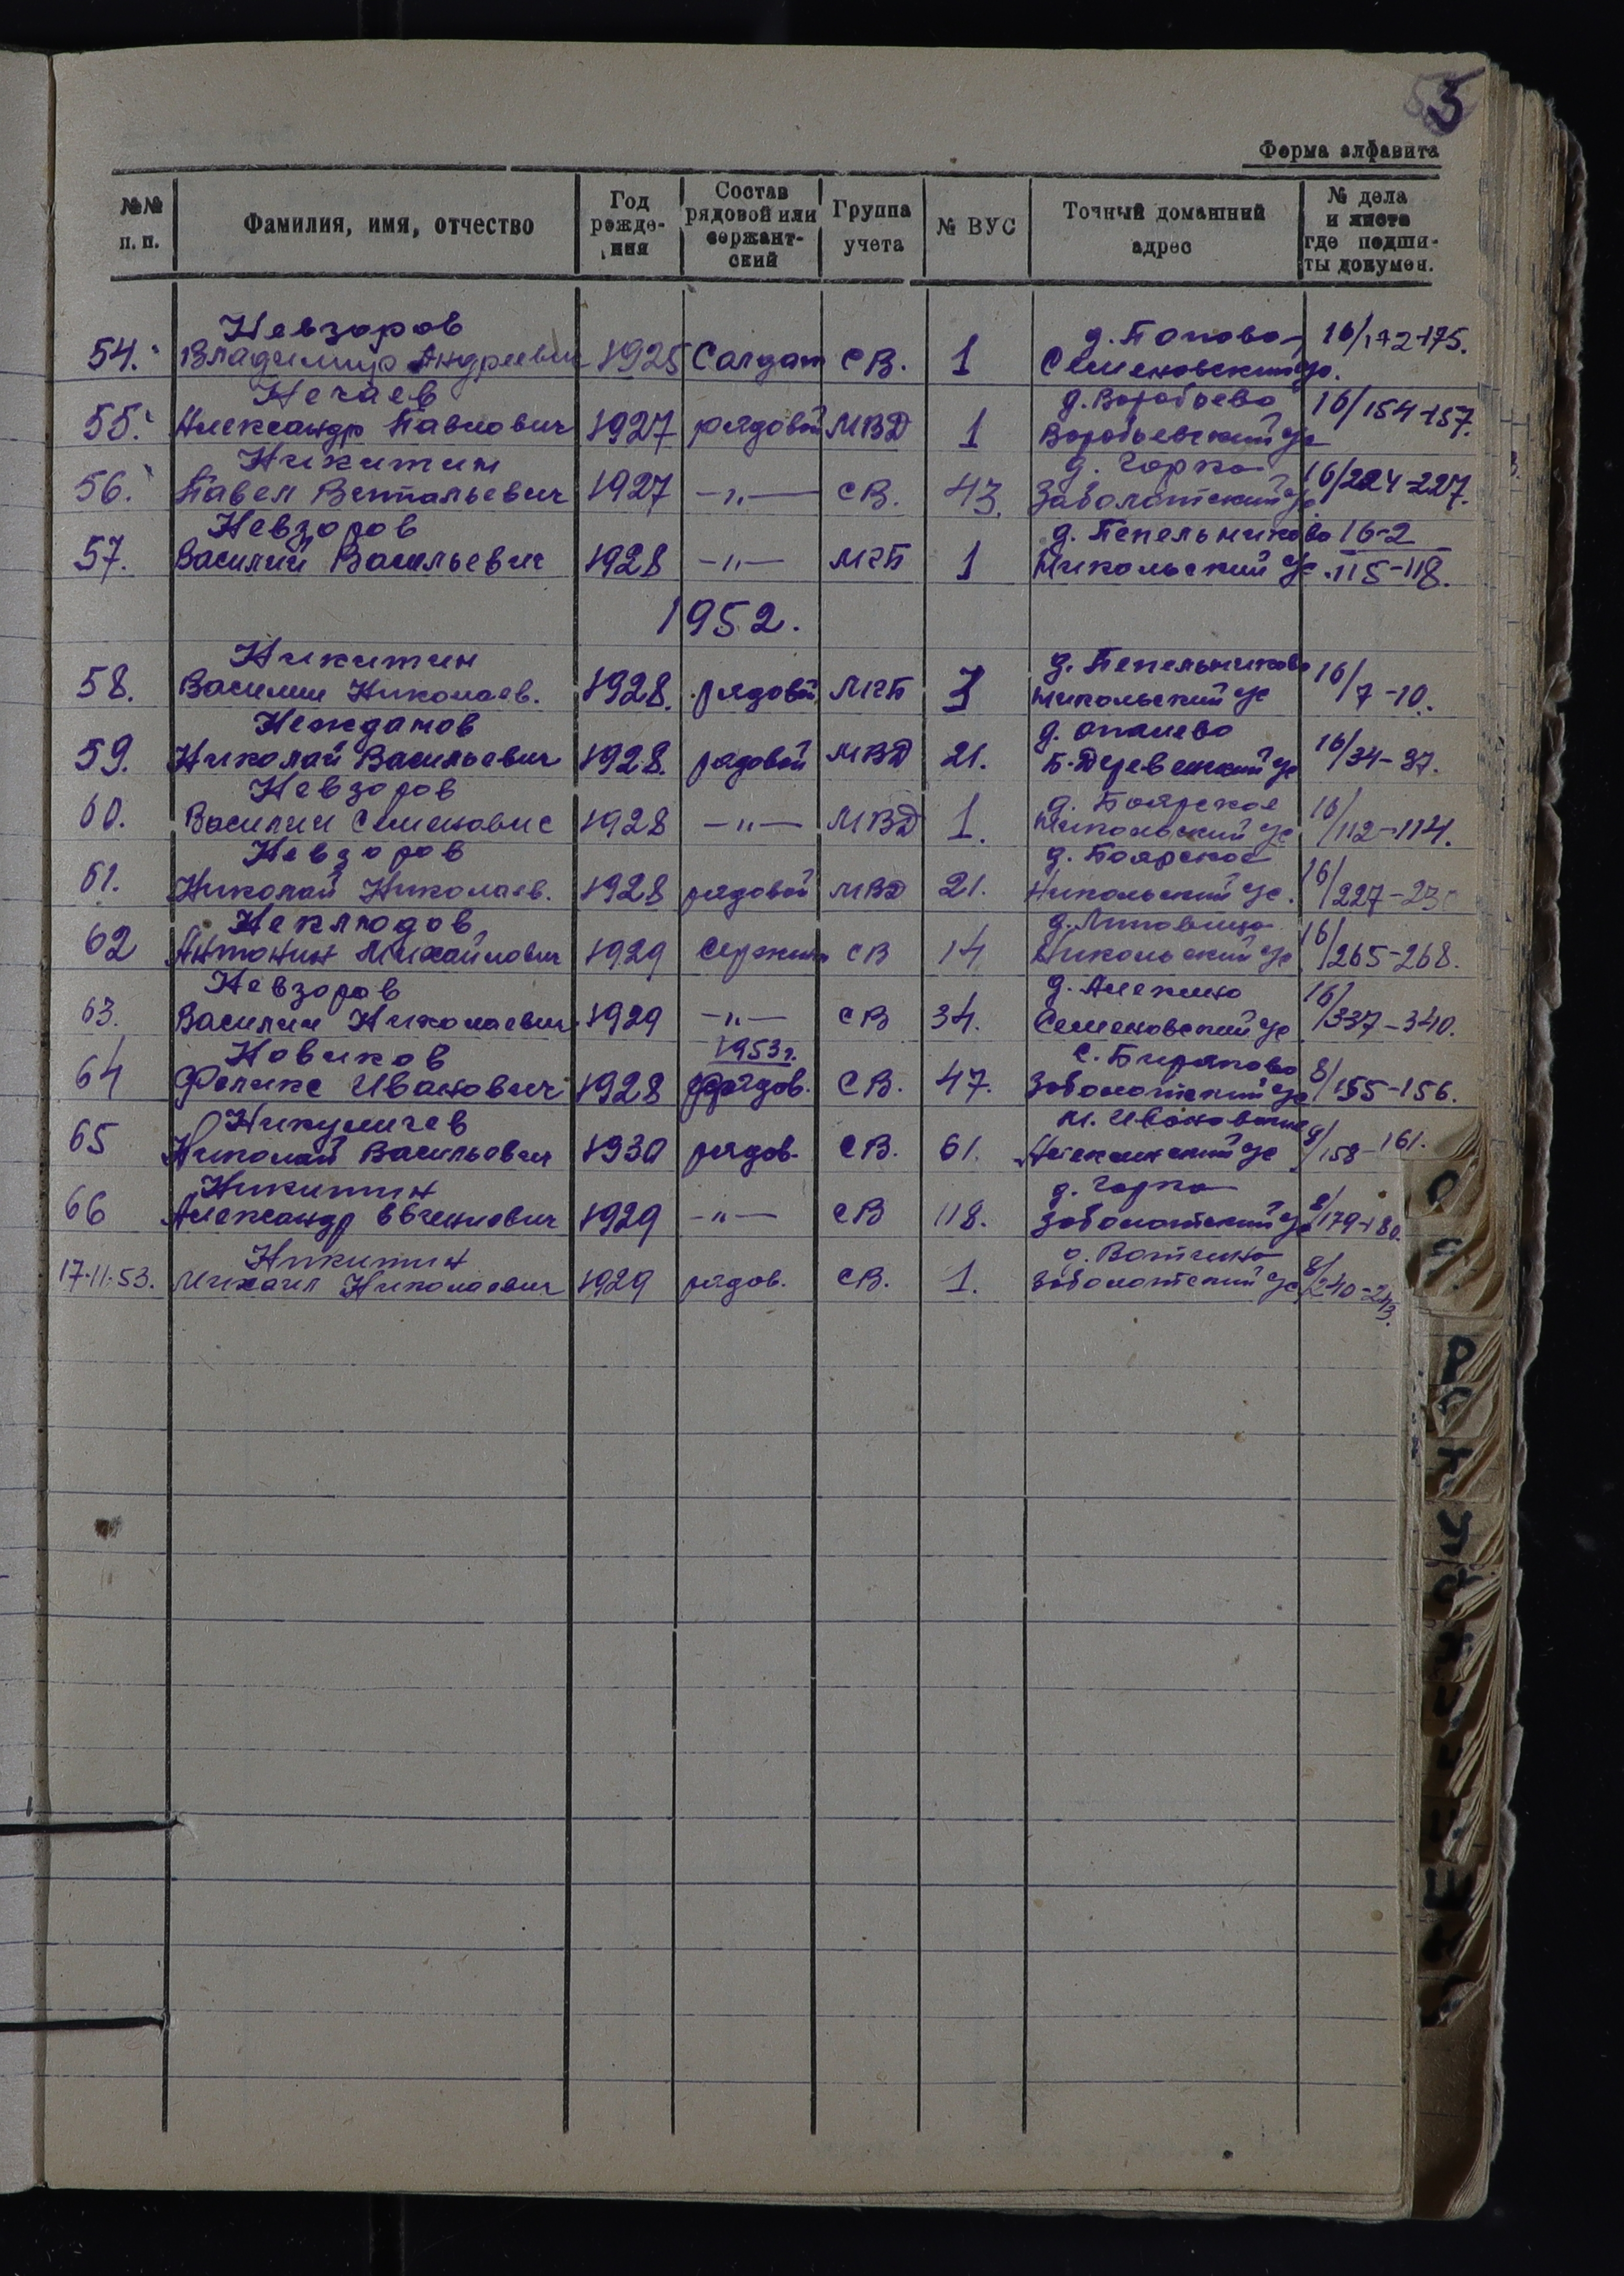 5
Форма алфавита
№№ п. п. Фамилия, имя, отчество Год рожде- ния Состав рядовой или сержант- ский Группа учета № ВУС Точный домашний адрес № дела и листа где подши- ты докумен.
Невзоров д. Попово 16/172-175.
54. Владимир Андреевич 1925 Солдат СВ. 1 Семеновский с/с.
Нечаев д. Воробьево 16/154-157.
55. Александр Павлович 1927 рядовой МВД 1 Воробьевский с/с
Никитин д. Горка 16/224-227.
56. Павел Витальевич 1927 -"- СВ. 43. Заболотский с/с
Невзоров д. Пепельниково 16-2
57. Василий Васильевич 1928 -"- МГБ 1 Никольский с/с. 115-118.
1952.
Никитин д. Пепельниково 16/
58. Василий Николаев. 1928. рядовой МГБ 1 Никольский с/с 7-10.
Неждамов д. Опалево 16/
59. Николай Васильевич 1928. рядовой МВД 21. Б-Деревенский с/с 34-37.
Невзоров д. Боярское 16/
60. Василий Семенович 1928 -"- МВД 1. Никольский с/с 112-114.
Невзоров д. Боярское 16/
61. Николай Николаев. 1928 рядовой МВД 21. Никольский с/с. 227-230
Неклюдов д. 16/
62 Антонин Михайлович 1929 Сержант СВ 14 Никольский с/с 265-268.
Невзоров д. Алекино 16/
63. Василий Николаевич 1929 -"- СВ 34. Семеновский с/с 337-340.
Новиков 1953г. с. Бираково 8/
64 Феликс Иванович 1928 рядов. СВ. 47. Заболотский с/с 155-156.
Никуличев 8/
65 Николай Васильевич 1930 рядов. СВ. 61. с/с 158-161.
Никитин д. Горка 8/
66 Александр Евгениевич 1929 -"- СВ 118. Заболотский с/с 179-180.
Никитин д. Вотчино 8/
17.11.53. Михаил Николаевич 1929 рядов. СВ. 1. Заболотский с/с 240-243.